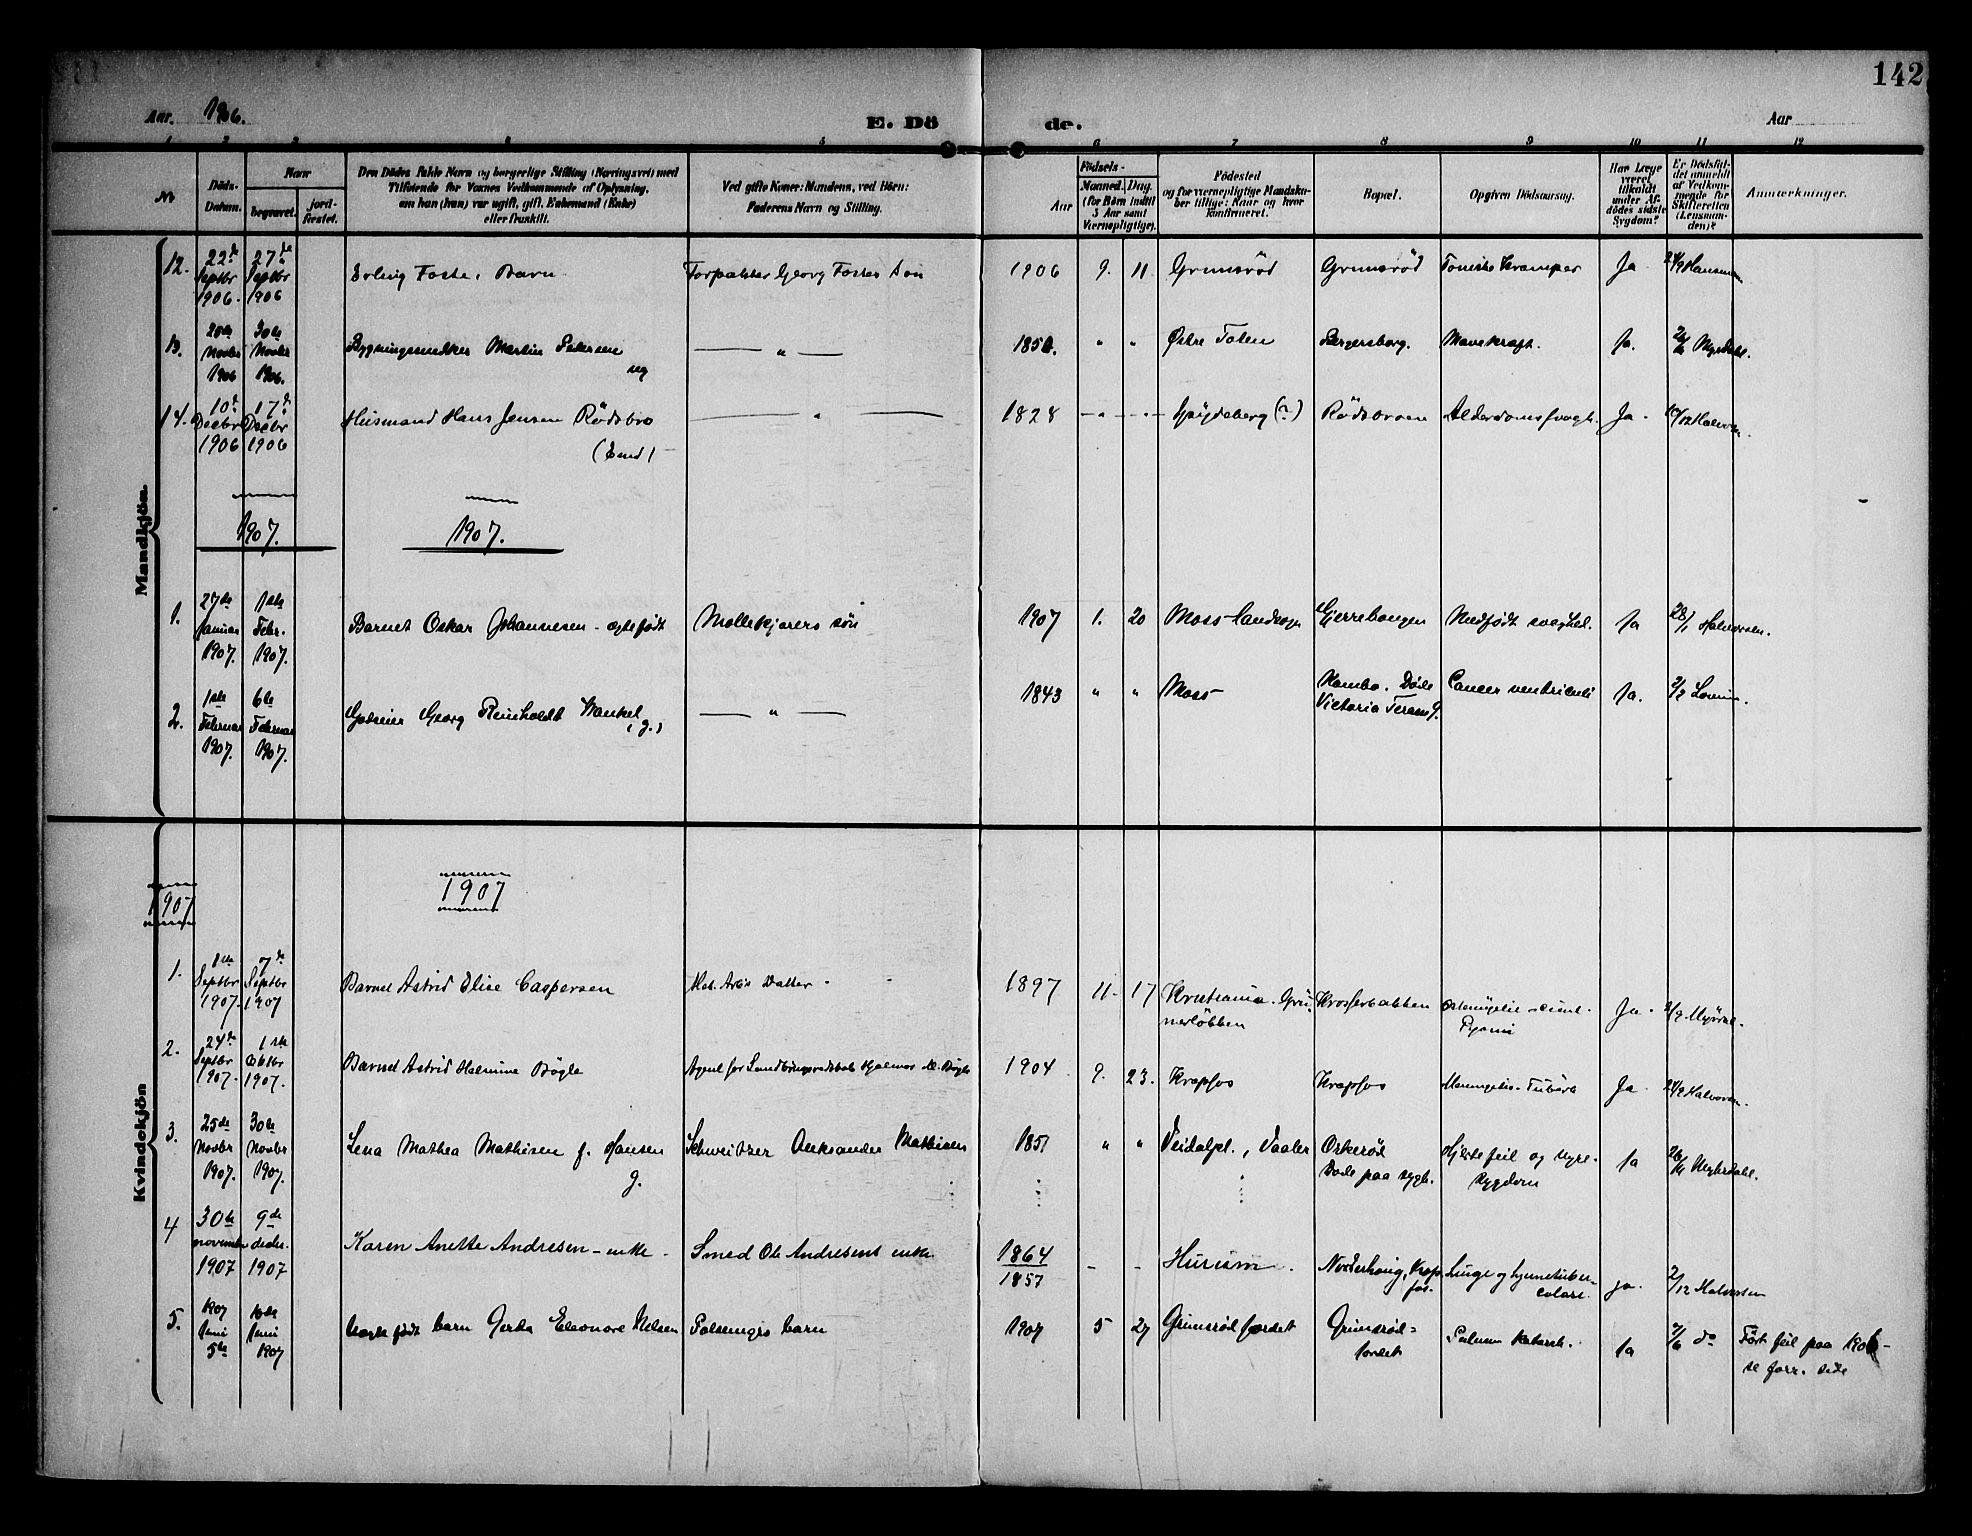 142
Aar. 1906.
E. Döde.
Aar
1 2 3 4 5 6 7 8 9 10 11 12
No
Döds-Datum.
Naar
begravet.
jordfæstet.
Den Dödes fulde Navn og borgerlige Stilling (Næringsvei) med
Tilföiende for Voxnes Vedkommende af Oplysning,
om han (hun) var ugift, gift, Enkemand (Enke)
eller fraskilt.
Ved gifte Koner: Mandens, ved Börn:
Faderens Navn og Stilling.
Födsels-
Aar
Maaned. Dag.
(for Børn indtil
3 Aar samt
Værnepligtige).
Födested
og for værnepligtige Mandskaber tillige: Naar og hvor
konfirmeret.
Bopæl.
Opgiven Dödsaarsag.
Har Læge
været
tilkaldt
under Afdödes sidste
Sygdom?
Er Dödsfaldet anmeldt
af Vedkommende for
Skifteretten
(Lensmanden)?
Anmærkninger.
Mandkjön.
12. 22de Septbr 1906. 27de Septbr 1906 Erling Foste, Barn Forpakter Georg Fostes Søn 1906 9. 11. Grimsrød Grimsrød Toniske Kramper Ja 24/9 Hansen
13. Novbr 1906 30te Novbr 1906. Martin Petersen — " — 1856. " " Østre Toten Bergersborg. Mavekræft. Ja. Myrdahl.
14. 10de Decbr 1906 17de Decbr 1906 Husmand Hans Jensen Rödsbro — " — 1828 — " — " — Spydeberg (?) Rødsbroen Alderdomssvagh. Ja. /12 Halvorsen.
(Enkd)
1907. 1907.
1. 27de Januar 1907. 1ste Febr. 1907. Barnet Oskar Johannesen – ægtefødt Møllekjørers søn 1907 1. 20 Moss Landsogn Gjerrebogen Medfødt svaghed. Ja 28/1 Halvorsen.
2. 1ste Februar 1907. 6te Februar 1907. Godseier Georg Reinholdt Wankel (g.) — " — 1843 " " Moss Kambo. Døde Victoria Terasse 9. Cancer ventriculi Ja. 2/2
Kvindekjön
1907 1907
1. Septbr 1907. 7de Septbr 1907 Barnet Astrid Elise Caspersen Mat. Arb's Datter. 1897 11. 17 Kristiania. Grünerløkken Krosserbakken Ja. /9 Myrdal.
2. 24de Septbr 1907. 1ste Oktbr 1907. Barnet Astrid Halmine Bögle Agent for Landbrugsredskab Hjalmar M. Bögle 1904 9. 23. Krapfos Krapfos Meningitis Tuberc Ja. 24/9 Halvorsen.
3. 25de Novbr 1907. 30te Novbr 1907. Lena Mathea Mathisen f. Hansen g. Schweitzer Aleksander Mathisen 1851 " " Veidalpl., Vaaler Oskerød Døde paa sygh. Hjertefeil og nyresygdom Ja 26/11 Myhrdahl.
4 30te november 1907 9de decbr. 1907 Karen Anette Andresen – enke. Smed Ole Andresens enke 1864 1857 – – Hurum. Nordenhaug, Krapfos. Lunge og hjernetuberculose. ja. 2/12 Halvorsen
5. 1907 Juni 5te 10de Juni 1907 Uægte født barn Gerda Eleonore Nilsen barn 1907 5 27 Grimsrødfordet Grimsrødfordet katarrh. Ja 7/6 do Ført feil paa 1906 –
se forr. side